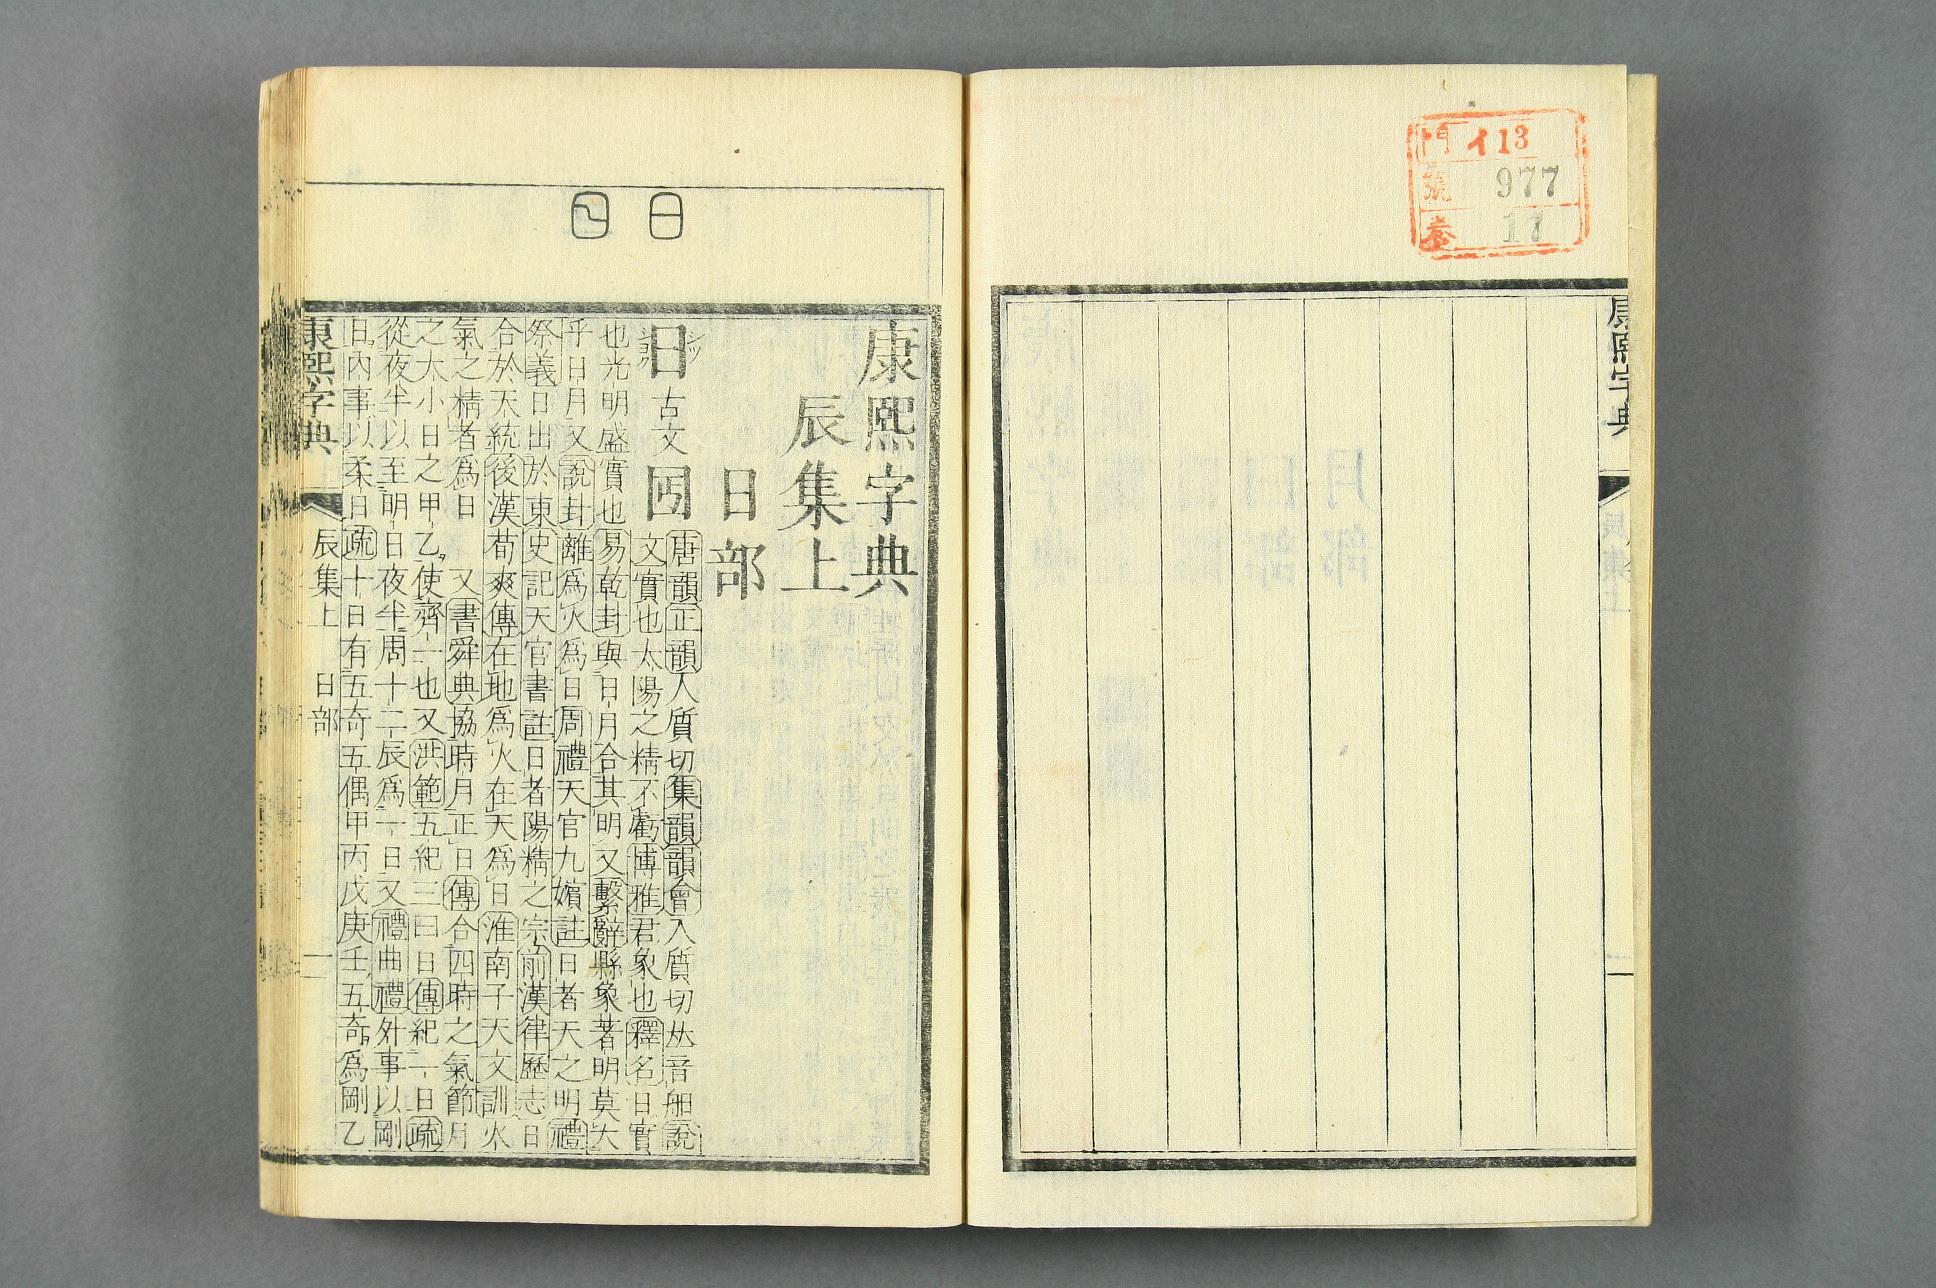 門 イ13
號 977
卷 17
康熙字典 辰集上 一
日
康熙字典
辰集上
日部
日 古文 囸
唐韻正韻人質切集韻韻會入質切𠀤音馹說
文實也太陽之精不虧博雅君象也釋名日實
也光明盛實也易乾卦與日月合其明又繫辭縣象著明莫大
乎日月又說卦離爲火爲日周禮天官九嬪註日者天之明禮
祭義日出於東史記天官書註日者陽精之宗前漢律歷志日
合於天統後漢荀爽傳在地爲火在天爲日淮南子天文訓火
氣之精者爲日 又書舜典協時月正日傳合四時之氣節月
之大小日之甲乙使齊一也又洪範五紀三曰日傳紀一日疏
從夜半以至明日夜半周十二辰爲一日又禮曲禮外事以剛
日內事以柔日疏十日有五奇五偶甲丙戊庚壬五奇爲剛乙
康熙字典 辰集上 日部 一